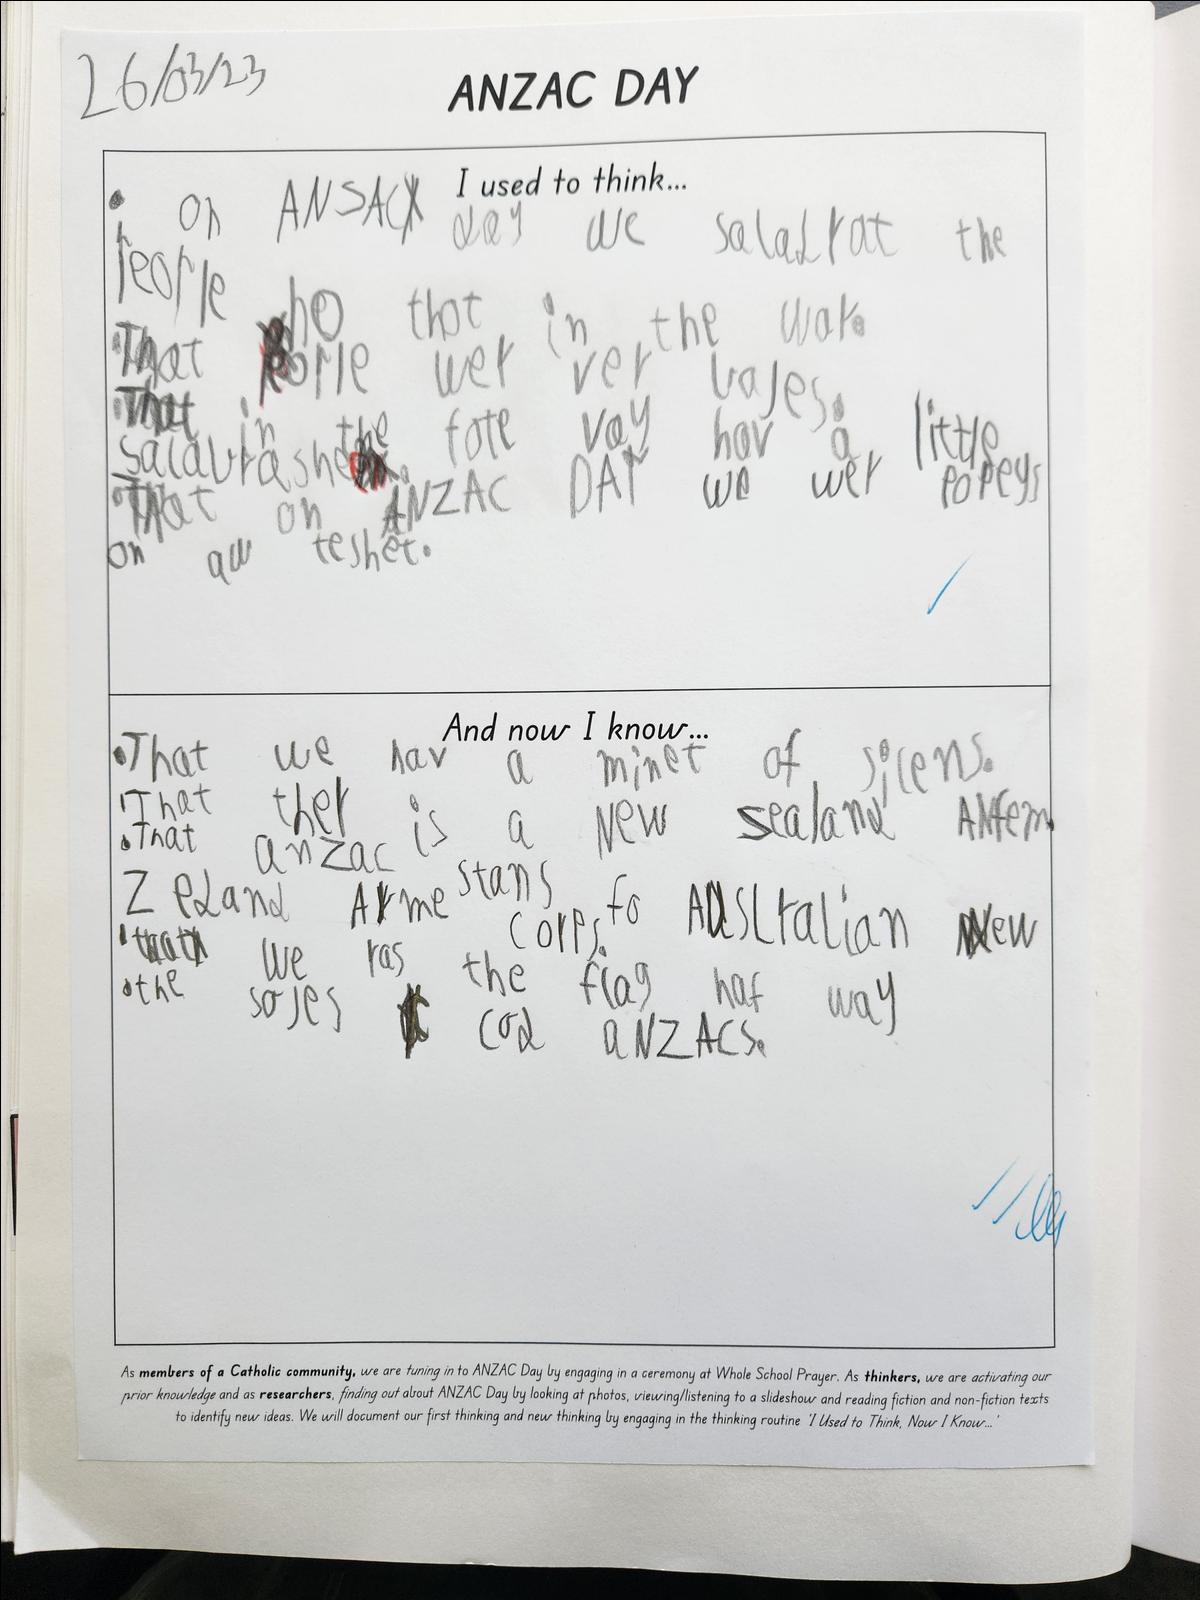 26/03/23
ANZAC DAY
I used to think...
• on ANSAC day we saladrat the
people ho thot in the war.
• That peorle wer ver vajes.
• That in the fote vay hav a little
salabrashen.
• That on ANZAC DAY we wer popeys
on aw teshet.
And now I know...
• That we hav a minet of silens.
• That ther is a New sealand ANfem
• That anzac stans fo AUSLtralian New
Zeland Arme Corps.
• that we ras the flag haf way
• the sojes cod ANZACS.
As members of a Catholic community, we are tuning in to ANZAC Day by engaging in a ceremony at Whole School Prayer. As thinkers, we are activating our
prior knowledge and as researchers, finding out about ANZAC Day by looking at photos, viewing/listening to a slideshow and reading fiction and non-fiction texts
to identify new ideas. We will document our first thinking and new thinking by engaging in the thinking routine 'I Used to Think, Now I Know...'